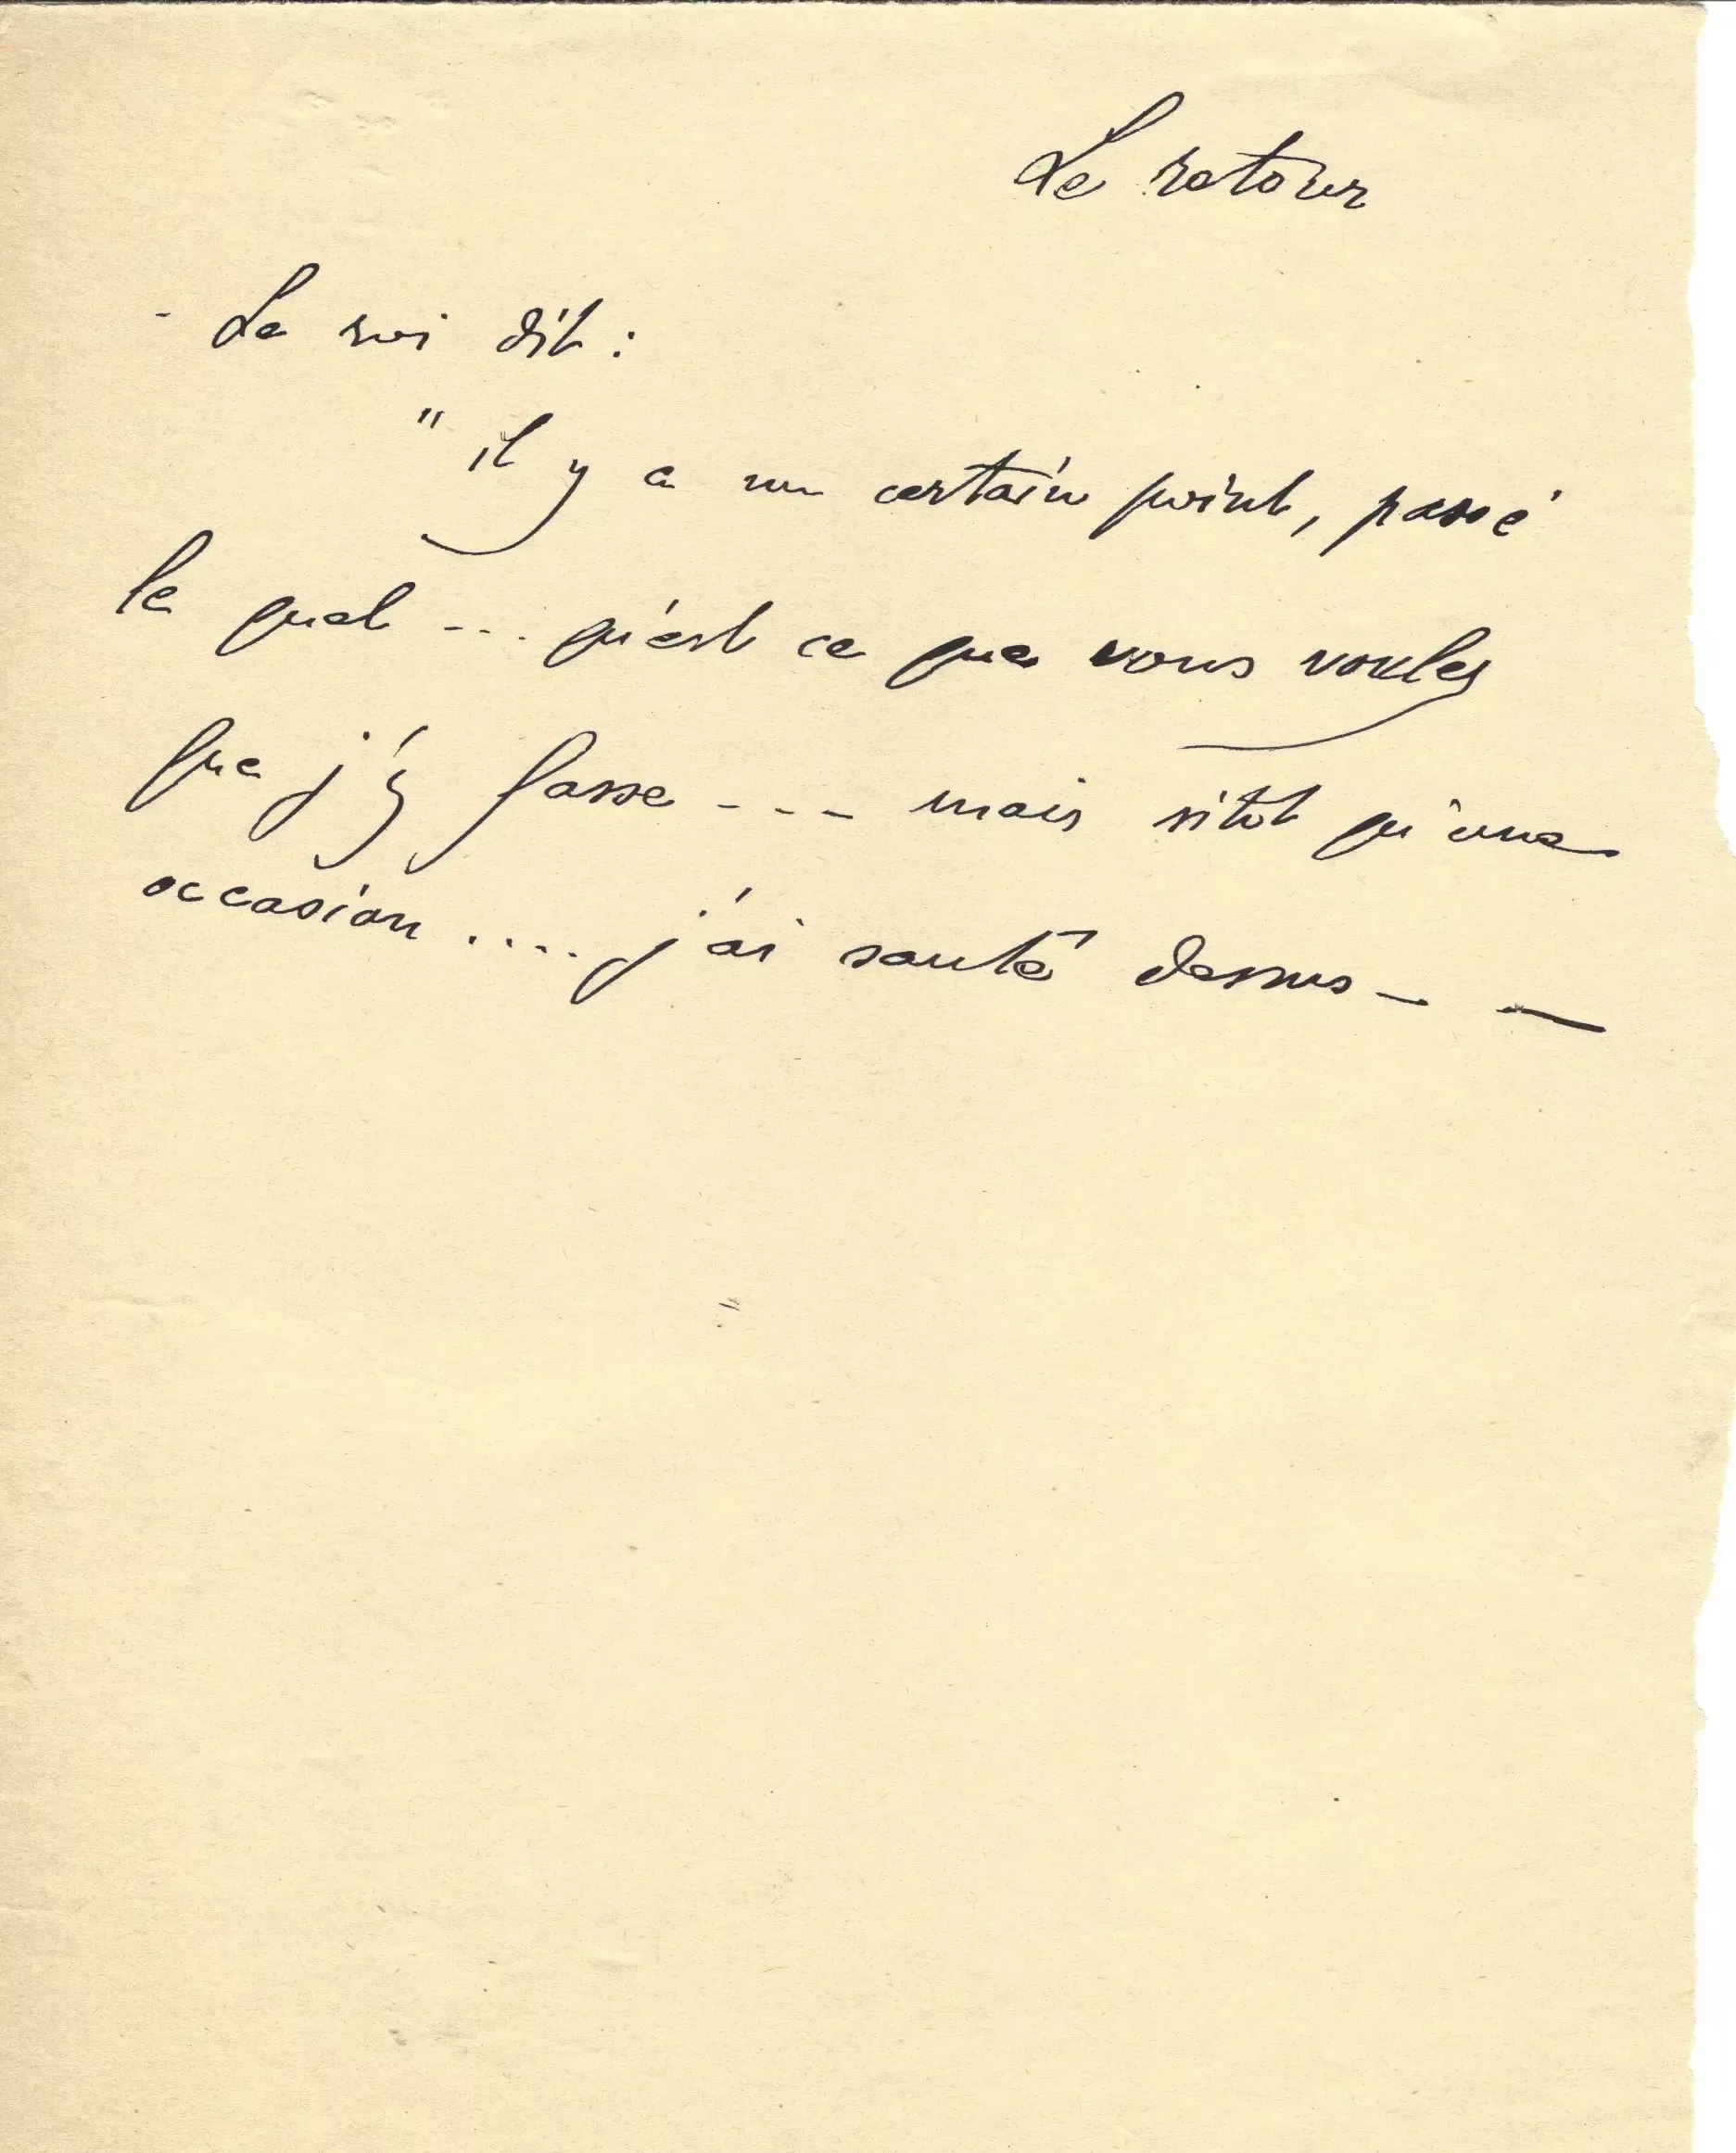 Le retour
- Le roi dit :
" il y a un certain point, passé
le quel ... qu'est ce que vous voulez
que j'y fasse --- mais sitot qu'une
occasion .... j'ai sauté dessus - —